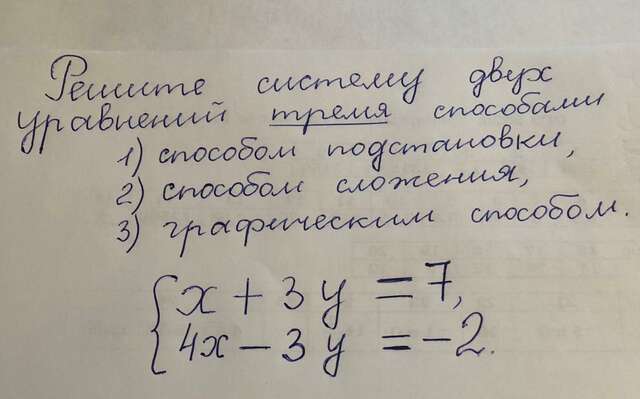 Решите систему двух
уравнений тремя способами
1) способом подстановки,
2) способом сложения,
3) графическим способом.
x + 3y = 7,
4x − 3y = −2.